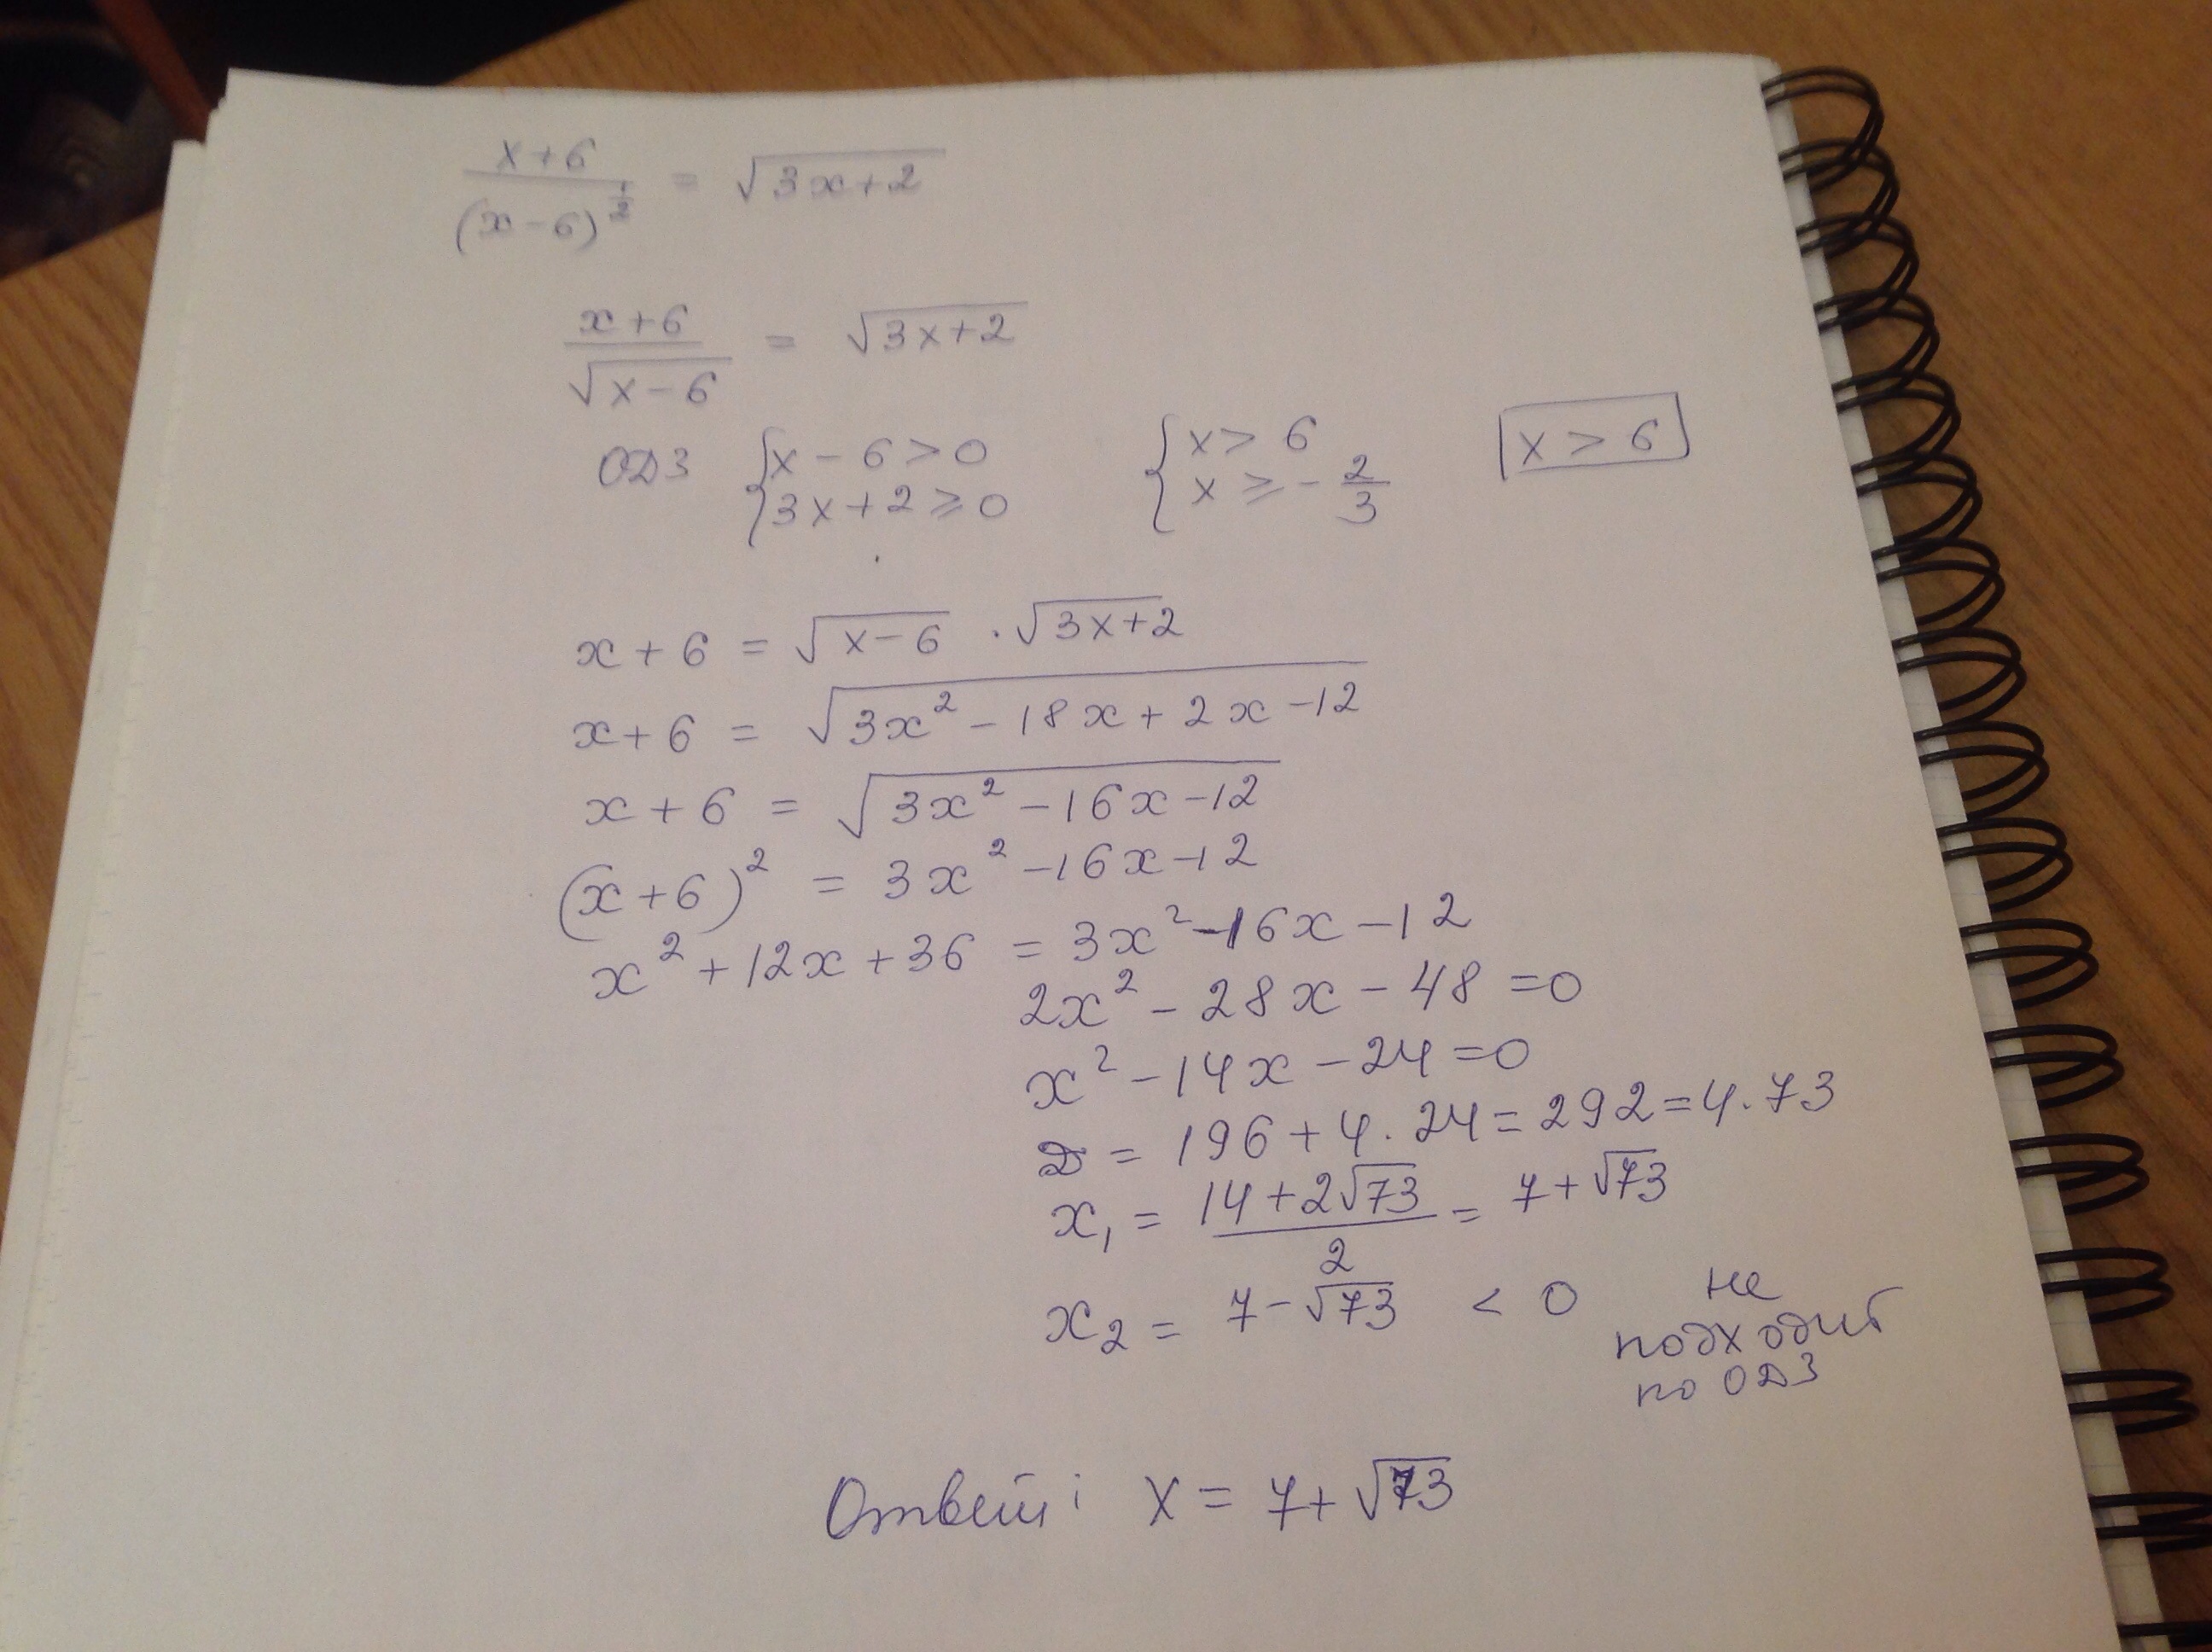 x+6 / (x-6)^(1/2) = √(3x+2)
x+6 / √(x-6) = √(3x+2)
ОДЗ { x-6>0 { x>6 x>6
3x+2⩾0 x⩾-2/3
x+6 = √(x-6) · √(3x+2)
x+6 = √(3x²-18x+2x-12)
x+6 = √(3x²-16x-12)
(x+6)² = 3x²-16x-12
x²+12x+36 = 3x²-16x-12
2x²-28x-48=0
x²-14x-24=0
D = 196+4·24=292=4·73
x₁ = (14+2√73)/2 = 7+√73
x₂ = 7-√73 < 0 не
подходит
по ОДЗ
Ответ: x = 7+√73